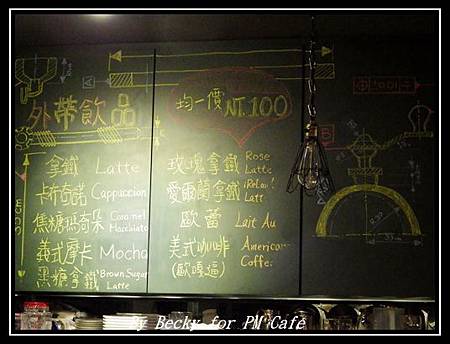 外帶飲品
均一價 NT.100
拿鐵 Latte
卡布奇諾 Cappuccino
焦糖瑪奇朵 Caramel Macchiato
義式摩卡 Mocha
黑糖拿鐵 Brown Sugar Latte
玫瑰拿鐵 Rose Latte
愛爾蘭拿鐵
歐蕾 Lait Au
美式咖啡 American Coffee
(歐嘎逼)
By Becky for PM Café